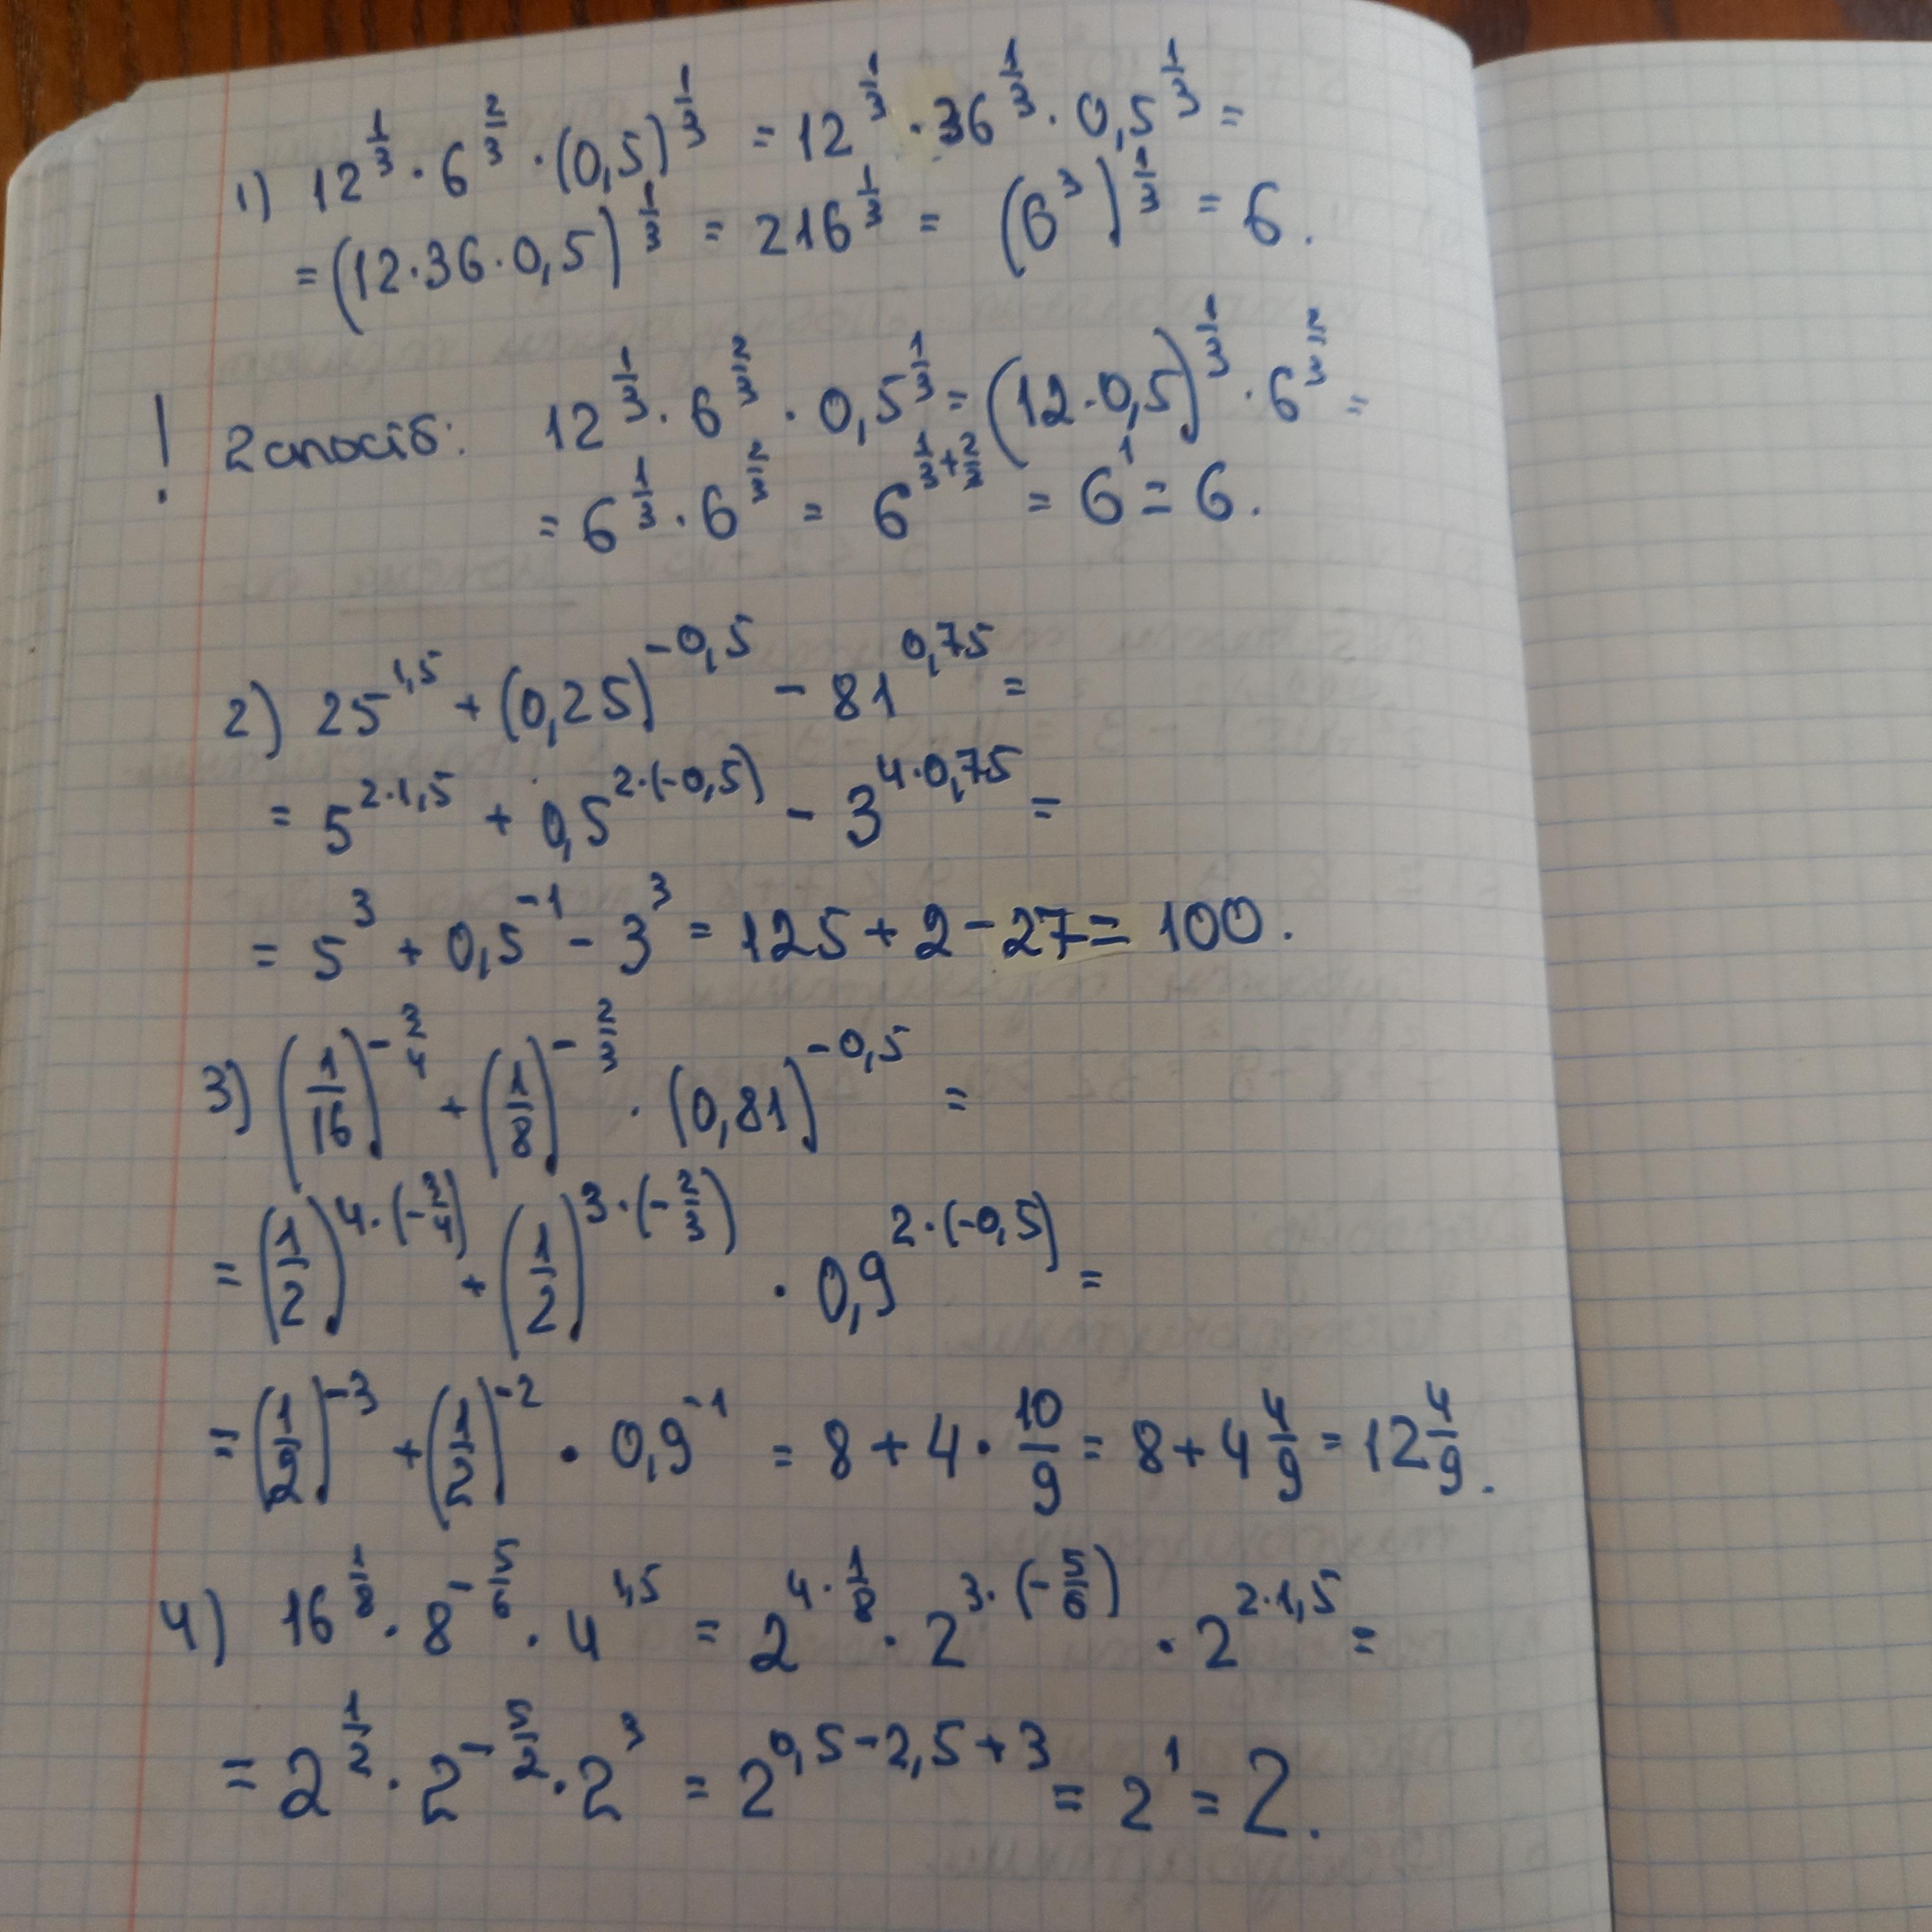 1) 12^(1/3) · 6^(2/3) · (0,5)^(1/3) = 12^(1/3) · 36^(1/3) · 0,5^(1/3) =
= (12·36·0,5)^(1/3) = 216^(1/3) = (6^3)^(1/3) = 6.
! 2 спосіб: 12^(1/3) · 6^(2/3) · 0,5^(1/3) = (12·0,5)^(1/3) · 6^(2/3) =
= 6^(1/3) · 6^(2/3) = 6^(1/3+2/3) = 6^1 = 6.
2) 25^(1,5) + (0,25)^(-0,5) - 81^(0,75) =
= 5^(2·1,5) + 0,5^(2·(-0,5)) - 3^(4·0,75) =
= 5^3 + 0,5^(-1) - 3^3 = 125 + 2 - 27 = 100.
3) (1/16)^(-3/4) + (1/8)^(-2/3) · (0,81)^(-0,5) =
= (1/2)^(4·(-3/4)) + (1/2)^(3·(-2/3)) · 0,9^(2·(-0,5)) =
= (1/2)^(-3) + (1/2)^(-2) · 0,9^(-1) = 8 + 4 · 10/9 = 8 + 4 4/9 = 12 4/9.
4) 16^(1/8) · 8^(-5/6) · 4^(1,5) = 2^(4·1/8) · 2^(3·(-5/6)) · 2^(2·1,5) =
= 2^(1/2) · 2^(-5/2) · 2^3 = 2^(0,5-2,5+3) = 2^1 = 2.